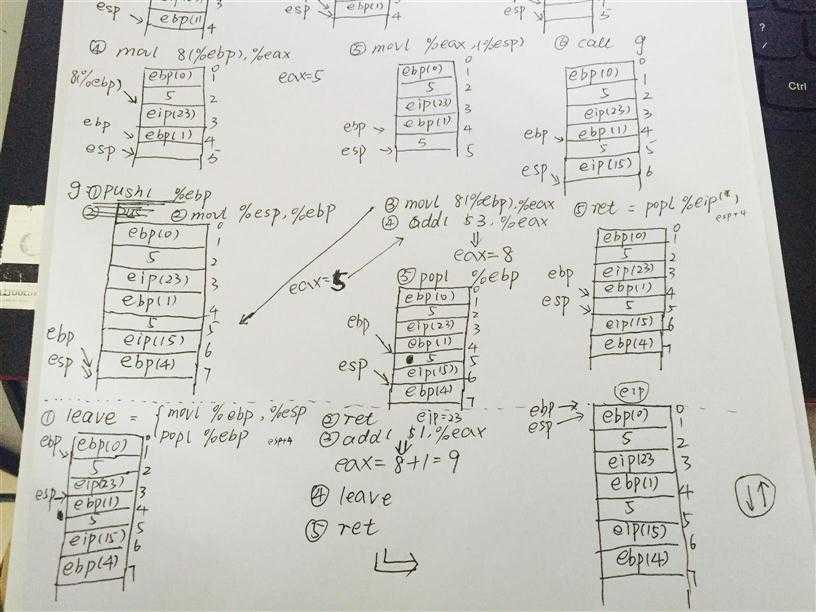 3
esp ebp(1) 4
esp 4
5
④ movl 8(%ebp), %eax
8(%ebp)
ebp
esp
ebp(0)
5
eip(23)
ebp(1)
0
1
2
3
4
5
eax=5
⑤ movl %eax, (%esp)
ebp
esp
ebp(0)
5
eip(23)
ebp(1)
5
0
1
2
3
4
5
⑥ call g
ebp
esp
ebp(0)
5
eip(23)
ebp(1)
5
eip(15)
0
1
2
3
4
5
6
g: ① pushl %ebp
② movl %esp, %ebp
ebp
esp
ebp(0)
5
eip(23)
ebp(1)
5
eip(15)
ebp(4)
0
1
2
3
4
5
6
7
eax=5
③ movl 8(%ebp), %eax
④ addl $3, %eax
⇓
eax=8
⑤ popl %ebp
ebp
esp
ebp(0)
5
eip(23)
ebp(1)
5
eip(15)
ebp(4)
0
1
2
3
4
5
6
7
⑤ ret = popl %eip(*)
esp+4
ebp
esp
ebp(0)
5
eip(23)
ebp(1)
5
eip(15)
ebp(4)
0
1
2
3
4
5
6
7
① leave = { movl %ebp, %esp
popl %ebp esp+4
ebp
esp
ebp(0)
5
eip(23)
ebp(1)
5
eip(15)
ebp(4)
0
1
2
3
4
5
6
7
② ret eip=23
③ addl $1, %eax
⇓
eax=8+1=9
④ leave
⑤ ret
eip
ebp
esp
ebp(0)
5
eip(23
ebp(1)
5
eip(15)
ebp(4)
0
1
2
3
4
5
6
7
↓↑
?
/
Ctrl